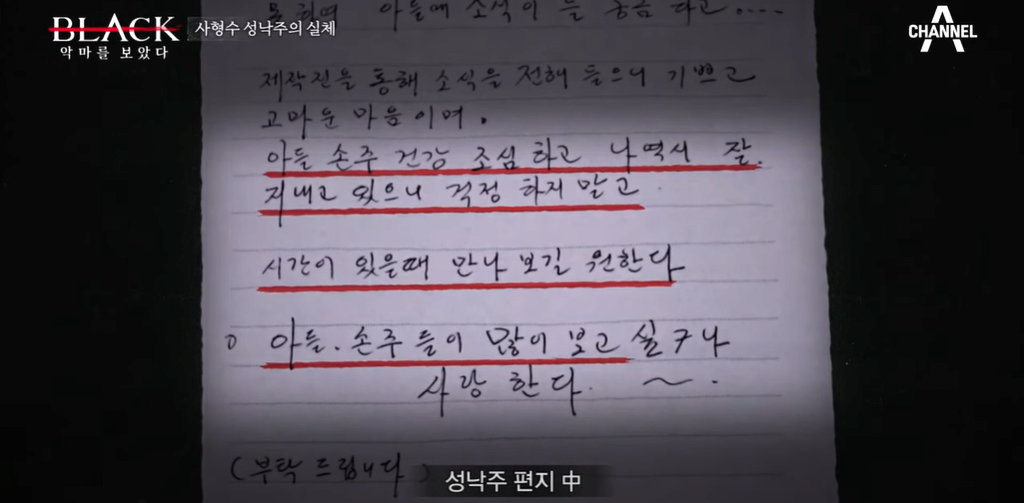 BLACK
악마를 보았다
사형수 성낙주의 실체
CHANNEL A
아들에 소식이 늘 궁금 타고....
제작진을 통해 소식을 전해 들으니 기쁘고
고마운 마음이며.
아들 손주 건강 조심하고 나역시 잘.
지내고 있으니 걱정 하지 말고.
시간이 있을때 만나 보길 원한다
아들. 손주들이 많이 보고 싶구나
사랑 한다. ~.
(부탁 드립니다)
성낙주 편지 中